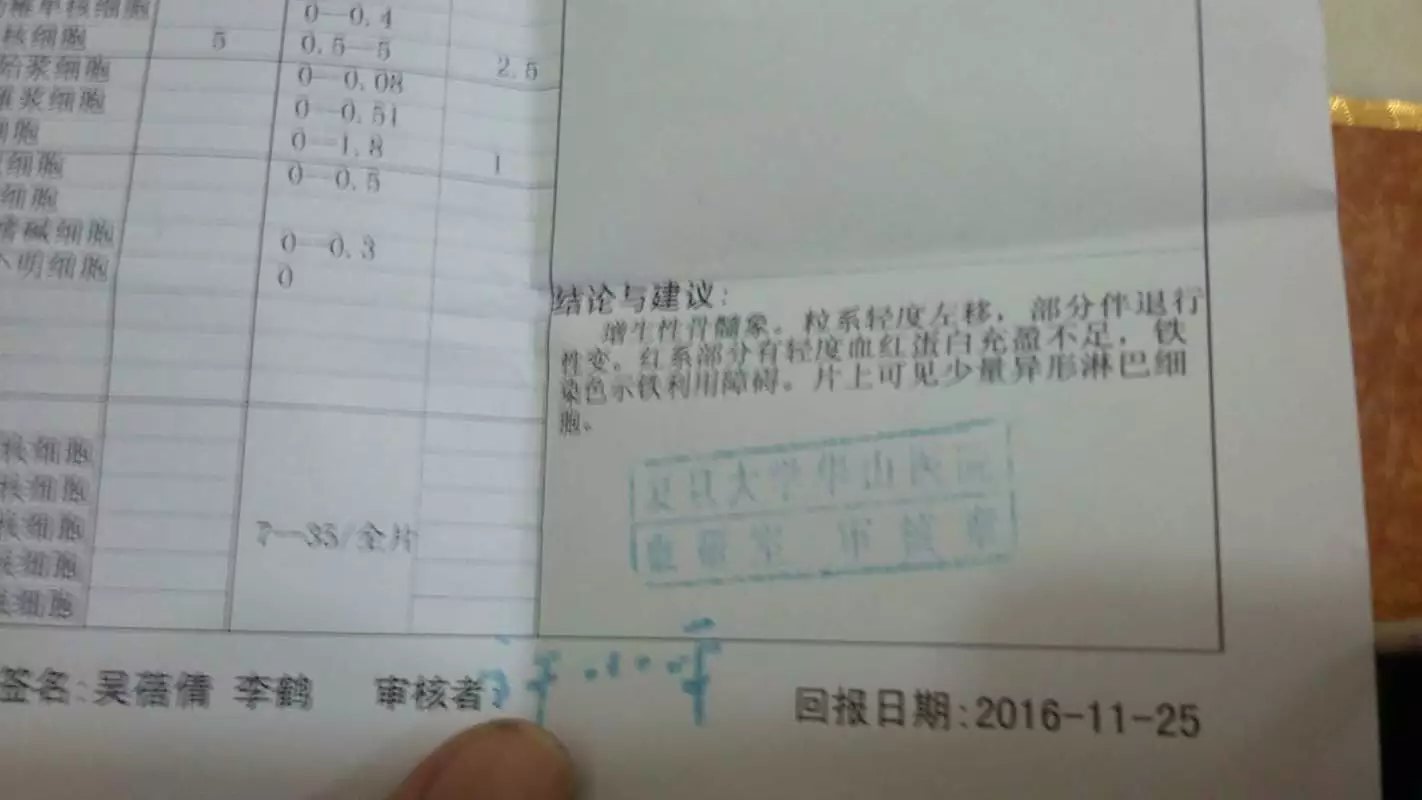 稚单核细胞 0—0.4
核细胞 5 0.5—5 2.5
始浆细胞 0—0.08
浆细胞 0—0.51
细胞 0—1.8 1
细胞 0—0.5
细胞
嗜碱细胞 0—0.3
不明细胞 0
结论与建议:
增生性骨髓象。粒系轻度左移，部分伴退行
性变。红系部分有轻度血红蛋白充盈不足，铁
染色示铁利用障碍。片上可见少量异形淋巴细
胞。
核细胞
核细胞
核细胞 7—35/全片
细胞
细胞
复旦大学华山医院
血液室 审签章
签名:吴蓓倩 李鹤 审核者: 回报日期:2016-11-25